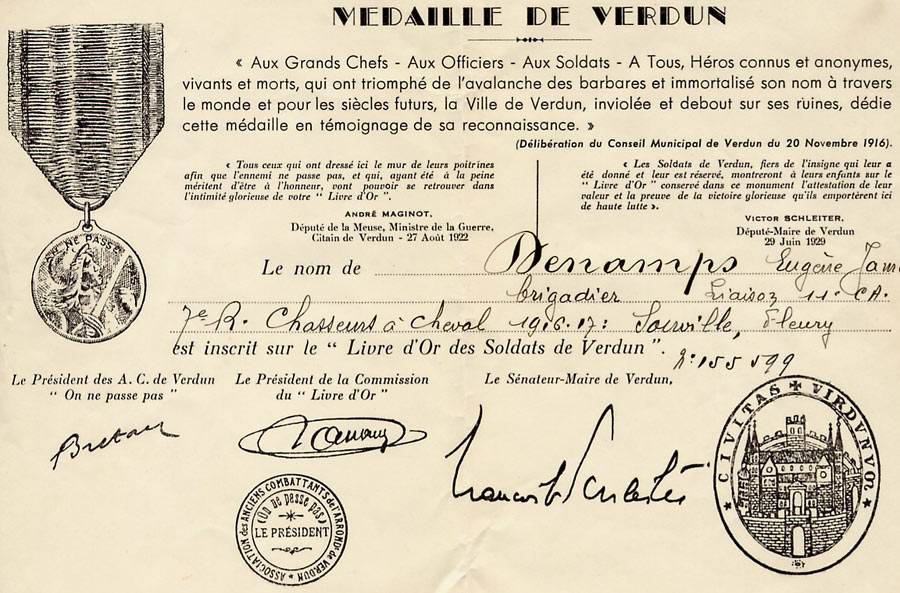 MEDAILLE DE VERDUN
« Aux Grands Chefs - Aux Officiers - Aux Soldats - A Tous, Héros connus et anonymes,
vivants et morts, qui ont triomphé de l'avalanche des barbares et immortalisé son nom à travers
le monde et pour les siècles futurs, la Ville de Verdun, inviolée et debout sur ses ruines, dédie
cette médaille en témoignage de sa reconnaissance. »
(Délibération du Conseil Municipal de Verdun du 20 Novembre 1916).
« Tous ceux qui ont dressé ici le mur de leurs poitrines
afin que l'ennemi ne passe pas, et qui, ayant été à la peine
méritent d'être à l'honneur, vont pouvoir se retrouver dans
l'intimité glorieuse de votre " Livre d'Or ".
ANDRÉ MAGINOT,
Député de la Meuse, Ministre de la Guerre,
Citain de Verdun - 27 Août 1922
« Les Soldats de Verdun, fiers de l'insigne qui leur a
été donné et leur est réservé, montreront à leurs enfants sur le
" Livre d'Or " conservé dans ce monument l'attestation de leur
valeur et la preuve de la victoire glorieuse qu'ils emportèrent ici
de haute lutte ».
VICTOR SCHLEITER,
Député-Maire de Verdun
29 Juin 1929
ON NE PASSE
Le nom de Denamps Eugène
brigadier Liaison 11e CA.
7e R. Chasseurs à cheval 1916.17: Fleury
est inscrit sur le " Livre d'Or des Soldats de Verdun ".
N° 155 599
Le Président des A. C. de Verdun
" On ne passe pas "
Le Président de la Commission
du " Livre d'Or "
Le Sénateur-Maire de Verdun,
ASSOCIATION des ANCIENS COMBATTANTS de l'ARRONDt de VERDUN
(On ne passe pas)
LE PRÉSIDENT
CIVITAS VIRDVNVM